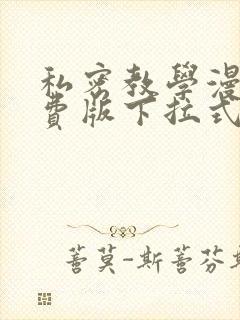 私密教學漫
費版下拉式
善莫-斯善芬斯